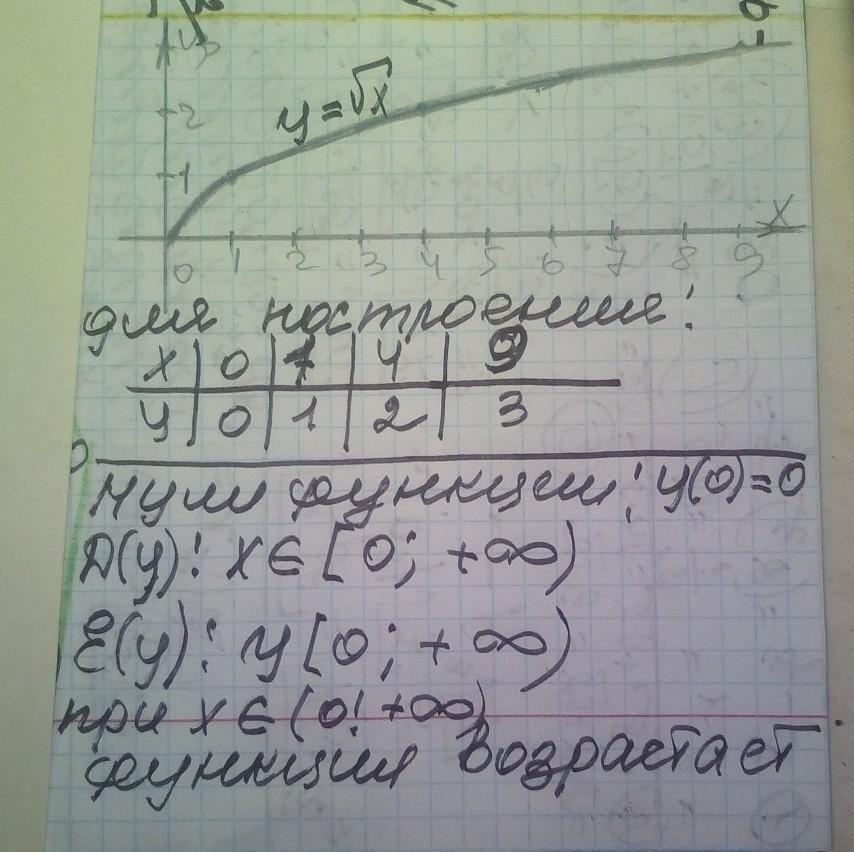 3
2
y=√x
1
X
0 1 2 3 4 5 6 7 8 9
для построения:
X | 0 | 1 | 4 | 9
y | 0 | 1 | 2 | 3
Нули функции: y(0)=0
D(y): X∈[0; +∞)
E(y): y[0; +∞)
при X∈(0; +∞)
функция возрастает